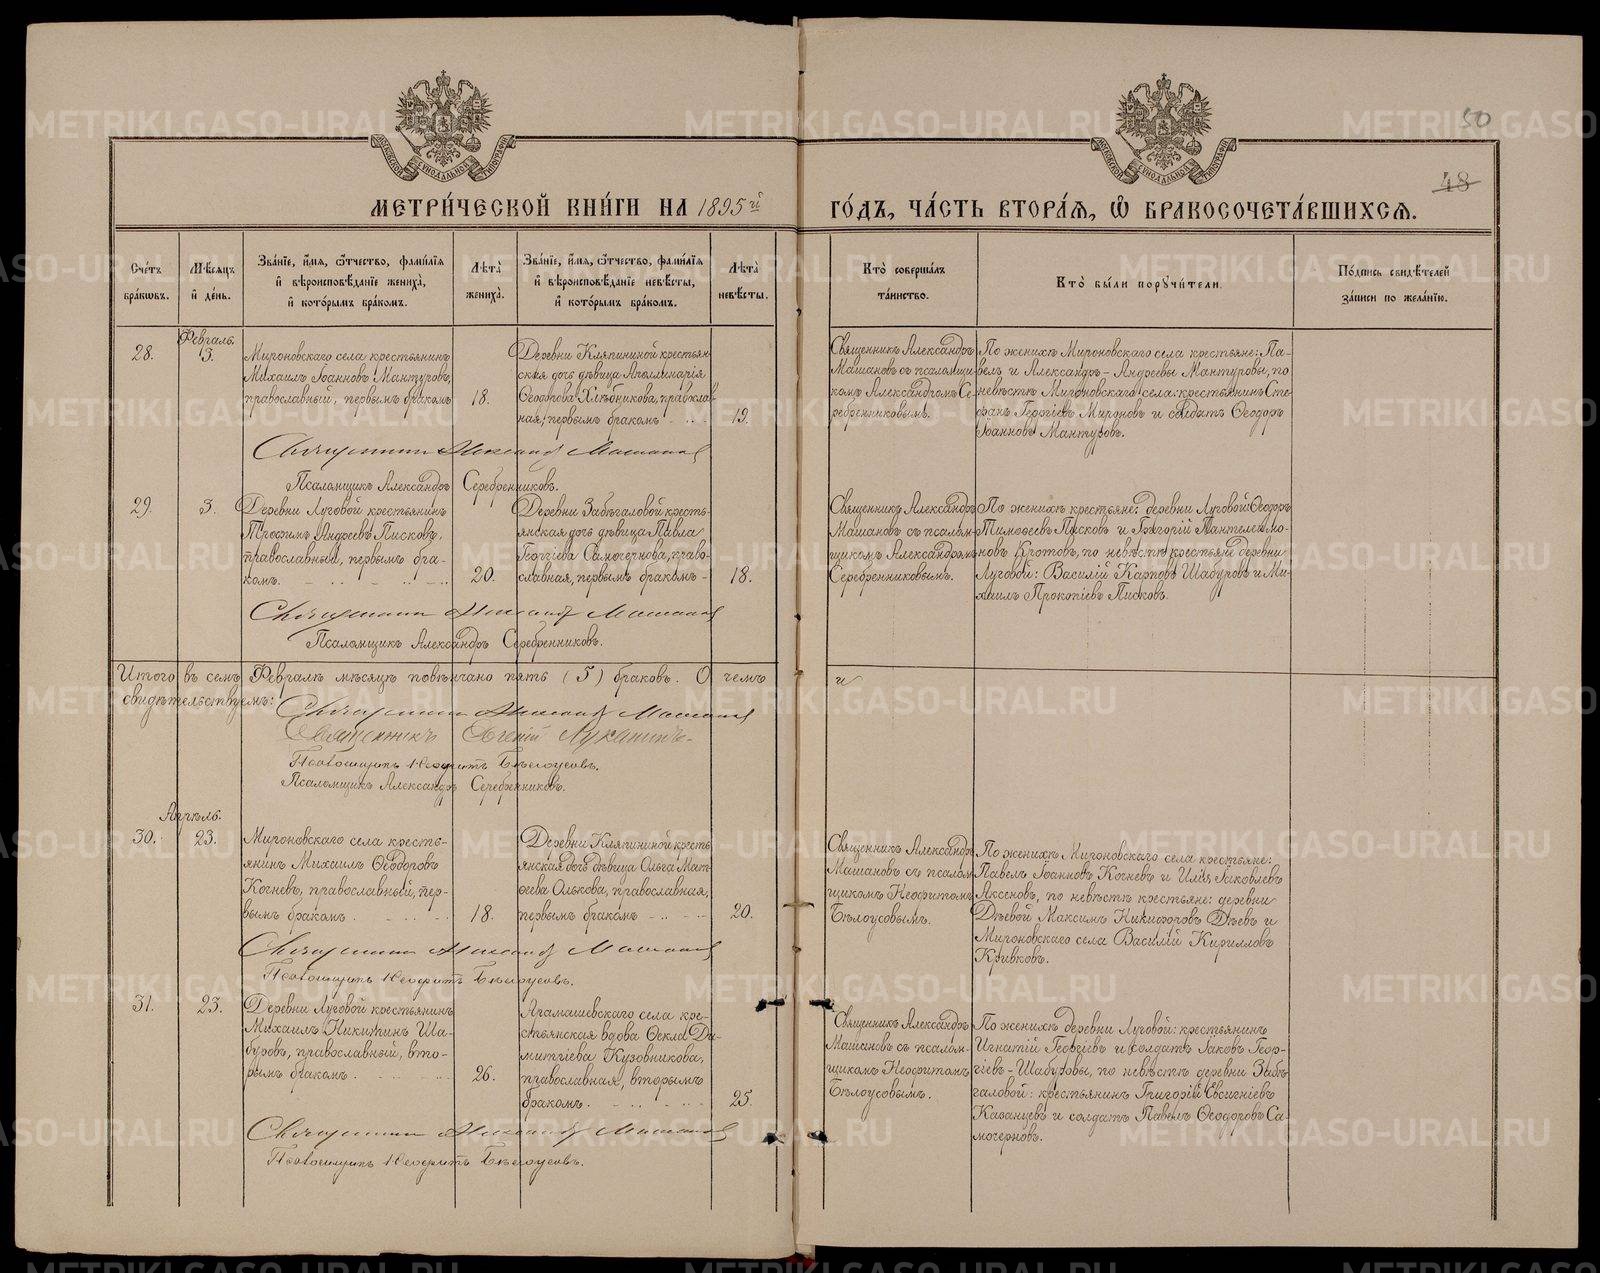 50
48
МОСКОВСКОЙ СѴНОДАЛЬНОЙ ТИПОГРАФІИ
МОСКОВСКОЙ СѴНОДАЛЬНОЙ ТИПОГРАФІИ
МЕТРИ́ЧЕСКОЙ КНИ́ГИ НА 1895й
ГО́ДЪ, ЧА́СТЬ ВТОРА́Я, Ѿ БРАКОСОЧЕТА́ВШИХСЯ.
Сче́тъ
бра́кѡвъ.
Мѣ́сяцъ
и҆ де́нь.
Зва́нїе, и҆́мя, ѻ҆́тчество, фами́лїя
и҆ вѣроисповѣ́данїе жениха̀,
и҆ кото́рымъ бра́комъ.
Лѣ́та
жениха̀.
Зва́нїе, и҆́мя, ѻ҆́тчество, фами́лїя
и҆ вѣроисповѣ́данїе невѣ́сты,
и҆ кото́рымъ бра́комъ.
Лѣ́та
невѣ́сты.
Кто̀ соверша́лъ
та́инство.
Кто̀ бы́ли поручи́тели.
По́дпись свидѣ́телей
за́писи по жела́нїю.
28.
Февраль.
3.
Мироновскаго села крестьянинъ
Михаилъ Іоанновъ Мантуровъ,
православный, первымъ бракомъ
18.
Деревни Кляпининой крестьян-
ская дочь дѣвица Аполлинарія
Ѳеодорова Хлѣбникова, православ-
ная, первымъ бракомъ
19.
Священникъ Александръ
Машановъ съ псаломщи-
комъ Александромъ Се-
ребренниковымъ.
По женихѣ Мироновскаго села крестьяне: Па-
велъ и Александръ Андреевы Мантуровы, по
невѣстѣ Мироновскаго села: крестьянинъ Сте-
фанъ Георгіевъ Мироновъ и солдатъ Ѳеодоръ
Іоанновъ Мантуровъ.
Священникъ Александръ Машановъ
Псаломщикъ Александръ Серебренниковъ.
29.
3.
Деревни Луговой крестьянинъ
Трофимъ Андреевъ Писковъ,
православный, первымъ бра-
комъ.
20.
Деревни Забѣгаловой кресть-
янская дочь дѣвица Павла
Георгіева Самочернова, право-
славная, первымъ бракомъ
18.
Священникъ Александръ
Машановъ съ псалом-
щикомъ Александромъ
Серебренниковымъ.
По женихѣ крестьяне: деревни Луговой: Ѳеодоръ
Тимоѳеевъ Писковъ и Григорій Пантелеимо-
новъ Кротовъ, по невѣстѣ крестьяне деревни
Луговой: Василій Карповъ Шабуровъ и Ми-
хаилъ Прокопіевъ Писковъ.
Священникъ Александръ Машановъ
Псаломщикъ Александръ Серебренниковъ.
Итого въ семъ Февралѣ мѣсяцѣ повѣнчано пять (5) браковъ. О чемъ
и
свидѣтельствуемъ:
Священникъ Александръ Машановъ
Священникъ Евгеній Луканинъ
Псаломщикъ Неофитъ Бѣлоусовъ.
Псаломщикъ Александръ Серебренниковъ.
Апрѣль.
30.
23.
Мироновскаго села кресть-
янинъ Михаилъ Ѳеодоровъ
Кочневъ, православный, пер-
вымъ бракомъ.
18.
Деревни Кляпининой кресть-
янская дочь дѣвица Ольга Мат-
ѳеева Олькова, православная,
первымъ бракомъ
20.
Священникъ Александръ
Машановъ съ псалом-
щикомъ Неофитомъ
Бѣлоусовымъ.
По женихѣ Мироновскаго села крестьяне:
Павелъ Іоанновъ Кочневъ и Илія Іаковлевъ
Аксеновъ, по невѣстѣ крестьяне: деревни
Дѣевой Максимъ Никифоровъ Дѣевъ и
Мироновскаго села Василій Кирилловъ
Кривковъ.
Священникъ Александръ Машановъ
Псаломщикъ Неофитъ Бѣлоусовъ.
31.
23.
Деревни Луговой крестьянинъ
Михаилъ Никитинъ Ша-
буровъ, православный, вто-
рымъ бракомъ.
26.
Арамашевскаго села кре-
стьянская вдова Ѳекла Ди-
митріева Кузовникова,
православная, вторымъ
бракомъ.
25.
Священникъ Александръ
Машановъ съ псалом-
щикомъ Неофитомъ
Бѣлоусовымъ.
По женихѣ деревни Луговой: крестьянинъ
Игнатій Георгіевъ и солдатъ Іаковъ Геор-
гіевъ Шабуровы, по невѣстѣ деревни Забѣ-
галовой: крестьянинъ Григорій Евсигніевъ
Казанцевъ и солдатъ Павелъ Ѳеодоровъ Са-
мочерновъ.
Священникъ Александръ Машановъ
Псаломщикъ Неофитъ Бѣлоусовъ.
METRIKI.GASO-URAL.RU